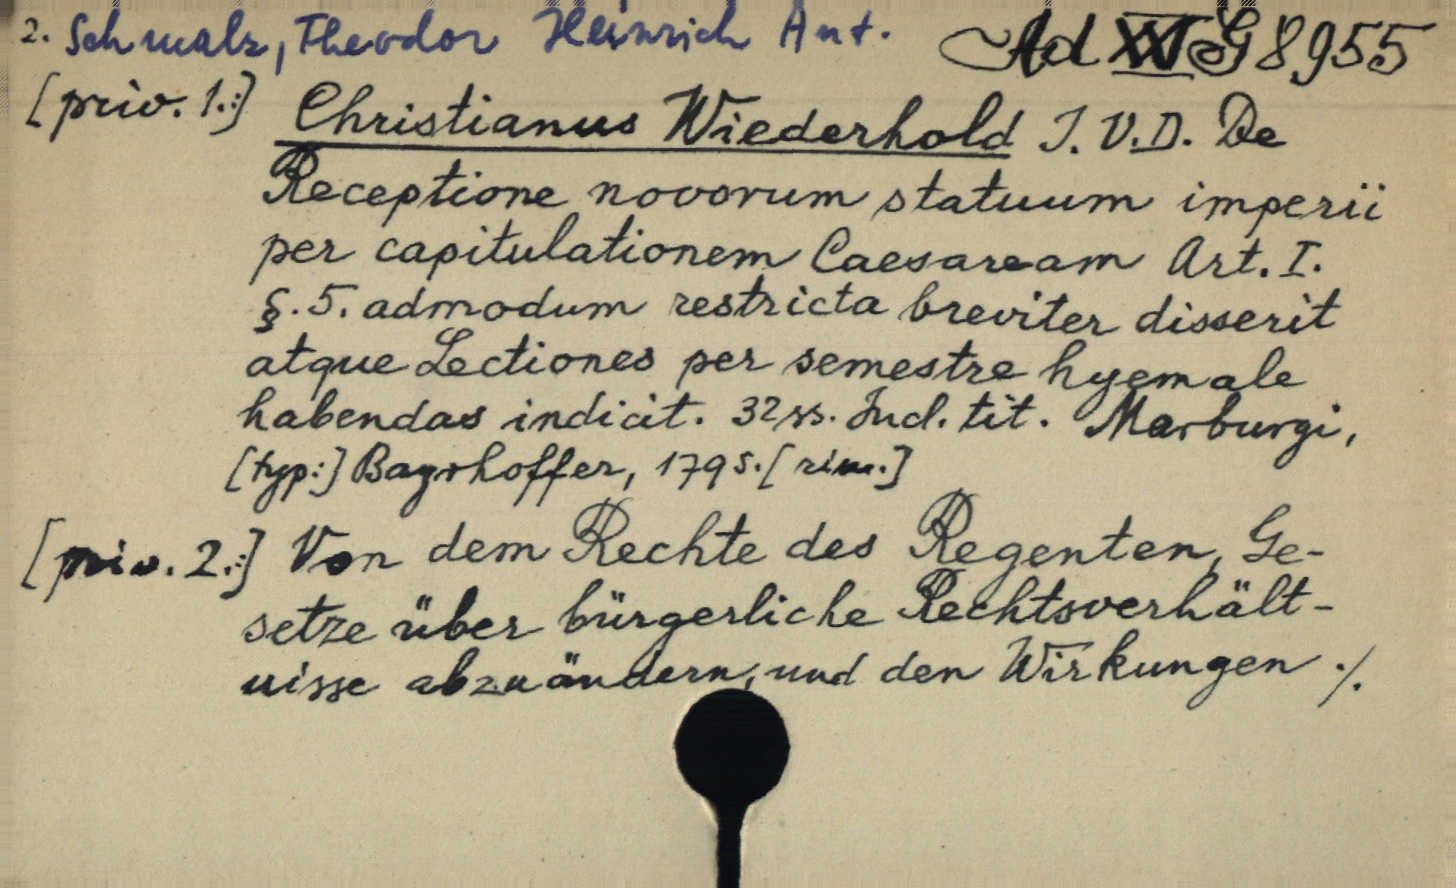 2. Schmalz, Theodor Heinrich Ant. Ad XVI G 8955
[priv. 1.:] Christianus Wiederhold I. V. D. De
Receptione novorum statuum imperii
per capitulationem Caesaream Art. I.
§. 5. admodum restricta breviter disserit
atque Lectiones per semestre hyemale
habendas indicit. 32 ss. Incl. tit. Marburgi,
[typ:] Bayrhoffer, 1795. [rim.]
[priv. 2.:] Von dem Rechte des Regenten, Ge-
setze über bürgerliche Rechtsverhält-
nisse abzuändern, und den Wirkungen ./.